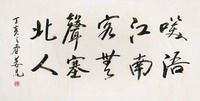 咲語
江南
客無
聲塞
北人
丁亥之春